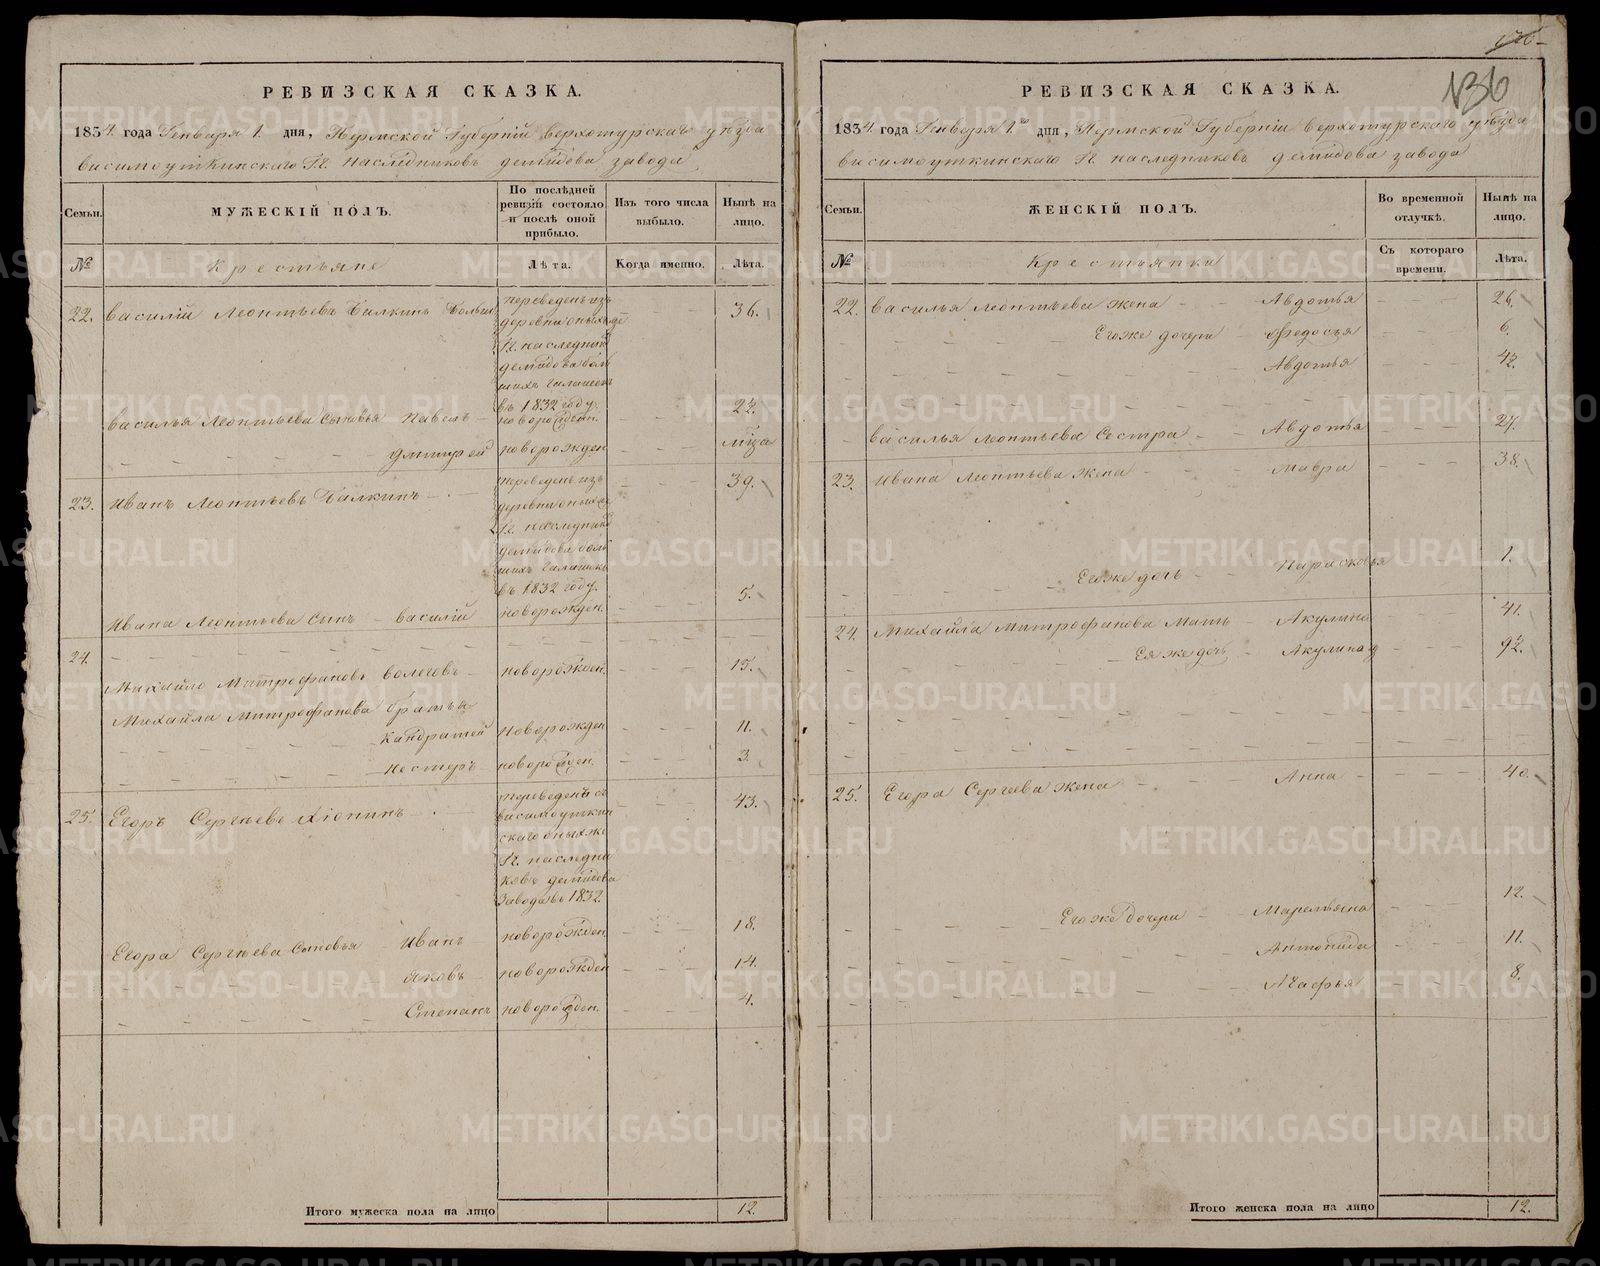 126
136
РЕВИЗСКАЯ СКАЗКА.
1834. года Генваря 1. дня, Пермской Губерній Верхотурскаго уѣзда
висимоуткинскаго Гг. наслѣдниковъ демидова завода
Семьи.
МУЖЕСКІЙ ПОЛЪ.
По послѣдней ревизіи состояло и послѣ оной прибыло.
Изъ того числа выбыло.
Нынѣ на лицо.
№
Крестьяне
Лѣта.
Когда именно.
Лѣта.
22. василій Леонтьевъ Балкинъ
переведенъ изъ 36.
деревни оныхже
Гг. наследник
демидова боль
шихъ Галашекъ
въ 1832 году.
василья Леонтьева Сыновья Павелъ новорожден. 2½.
дмитрей новорожден м҃ца
23. Иванъ Леонтьевъ Балкинъ переведенъ изъ 39.
деревни оныхже
Гг. наследник
демидова боль
шихъ Галашекъ
въ 1832 году.
Ивана Леонтьева Сынъ василій новорожден. 5.
24.
Михайло Митрофановъ волеговъ новорожден. 15.
Михайла Митрофанова братья
кандратей новорожден 11.
нестеръ новорожден. 3.
25. Егоръ Сергѣевъ Хіонинъ переведенъ съ 43.
висимоуткин
скаго оныхже
Гг. наследни
ковъ демидова
завода въ 1832.
Егора Сергѣева Сыновья Иванъ новорожден. 18.
яковъ новорожден 14.
Степанъ новорожден. 4.
Итого мужеска пола на лицо 12.
РЕВИЗСКАЯ СКАЗКА.
1834. года Генваря 1го дня, Пермской Губерній верхотурскаго уѣзда
висимоуткинскаго Гг. наследниковъ демидова завода
Семьи.
ЖЕНСКІЙ ПОЛЪ.
Во временной отлучкѣ.
Нынѣ на лицо.
№
Крестьянки
Съ котораго времени.
Лѣта.
22. василья Леонтьева жена Авдотья 26.
Егоже дочери Федосья 6.
Авдотья 4½.
василья Леонтьева Сестра Авдотья 27.
23. Ивана Леонтьева жена Мавра 38.
Егоже дочь Парасковья 1.
24. Михайла Митрофанова Мать Акулина 41.
Ея же дочь Акулина 9½.
25. Егора Сергеева жена Анна 40.
Егоже дочери Маремьяна 12.
Антонида 11.
Агафья 8.
Итого женска пола на лицо 12.
METRIKI.GASO-URAL.RU